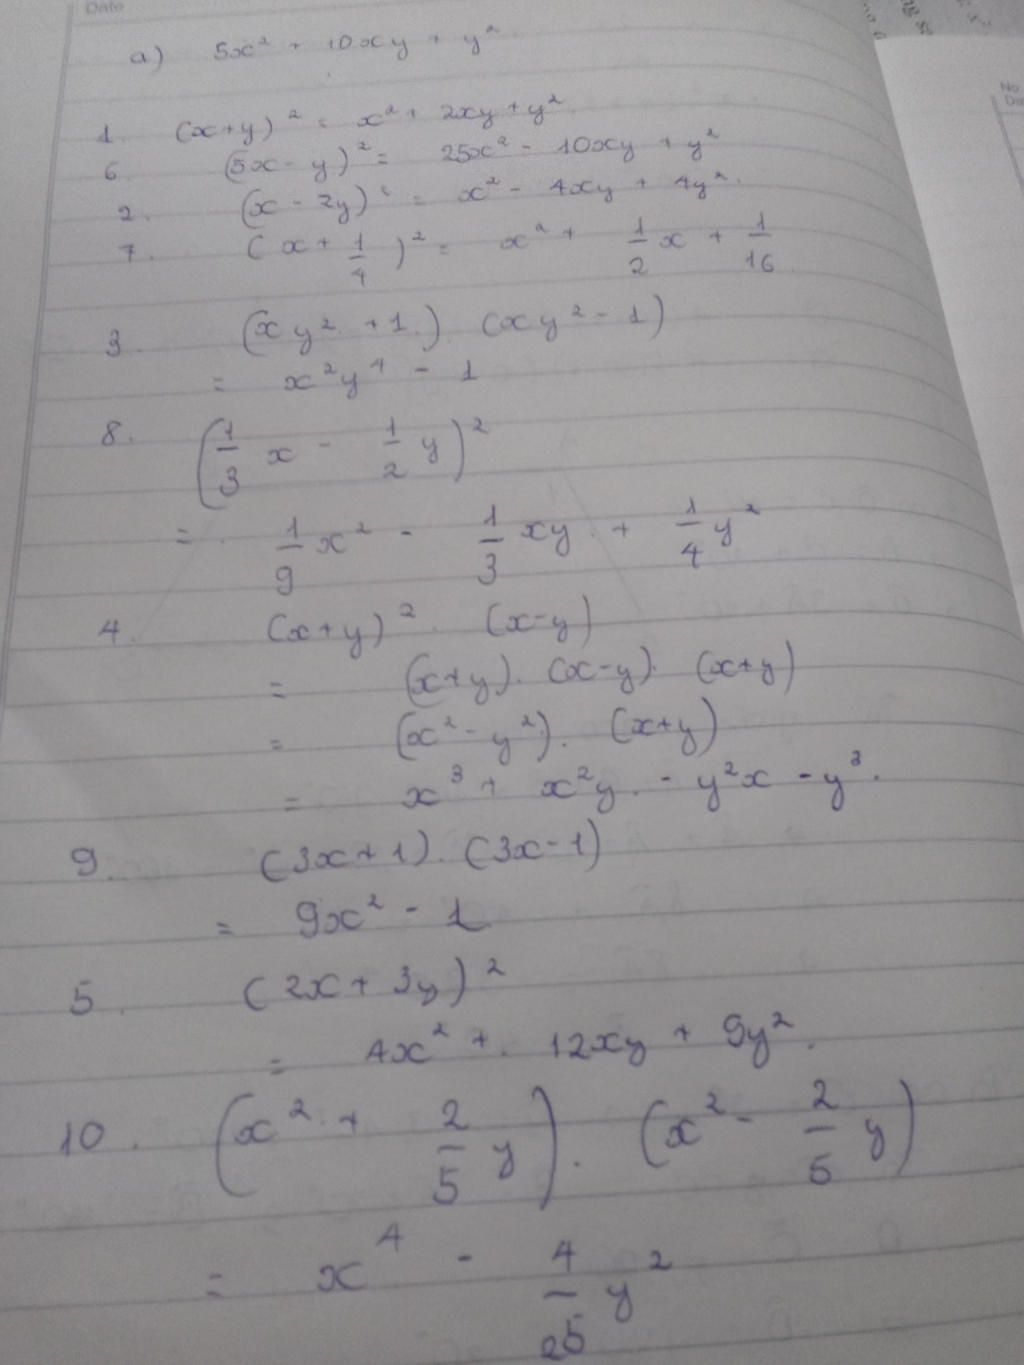 Date
a) 5x² + 10xy + y²
1. (x+y)² = x² + 2xy + y²
6. (5x - y)² = 25x² - 10xy + y²
2. (x - 2y)² = x² - 4xy + 4y².
7. (x + 1/4)² = x² + 1/2 x + 1/16
3. (xy² + 1) (xy² - 1)
= x²y⁴ - 1
8. (1/3 x - 1/2 y)²
= 1/9 x² - 1/3 xy + 1/4 y²
4. (x+y)². (x-y)
= (x+y). (x-y). (x+y)
= (x² - y²). (x+y)
= x³ + x²y - y²x - y³.
9. (3x+1). (3x-1)
= 9x² - 1
5. (2x + 3y)²
= 4x² + 12xy + 9y².
10. (x² + 2/5 y). (x² - 2/5 y)
= x⁴ - 4/25 y²
No